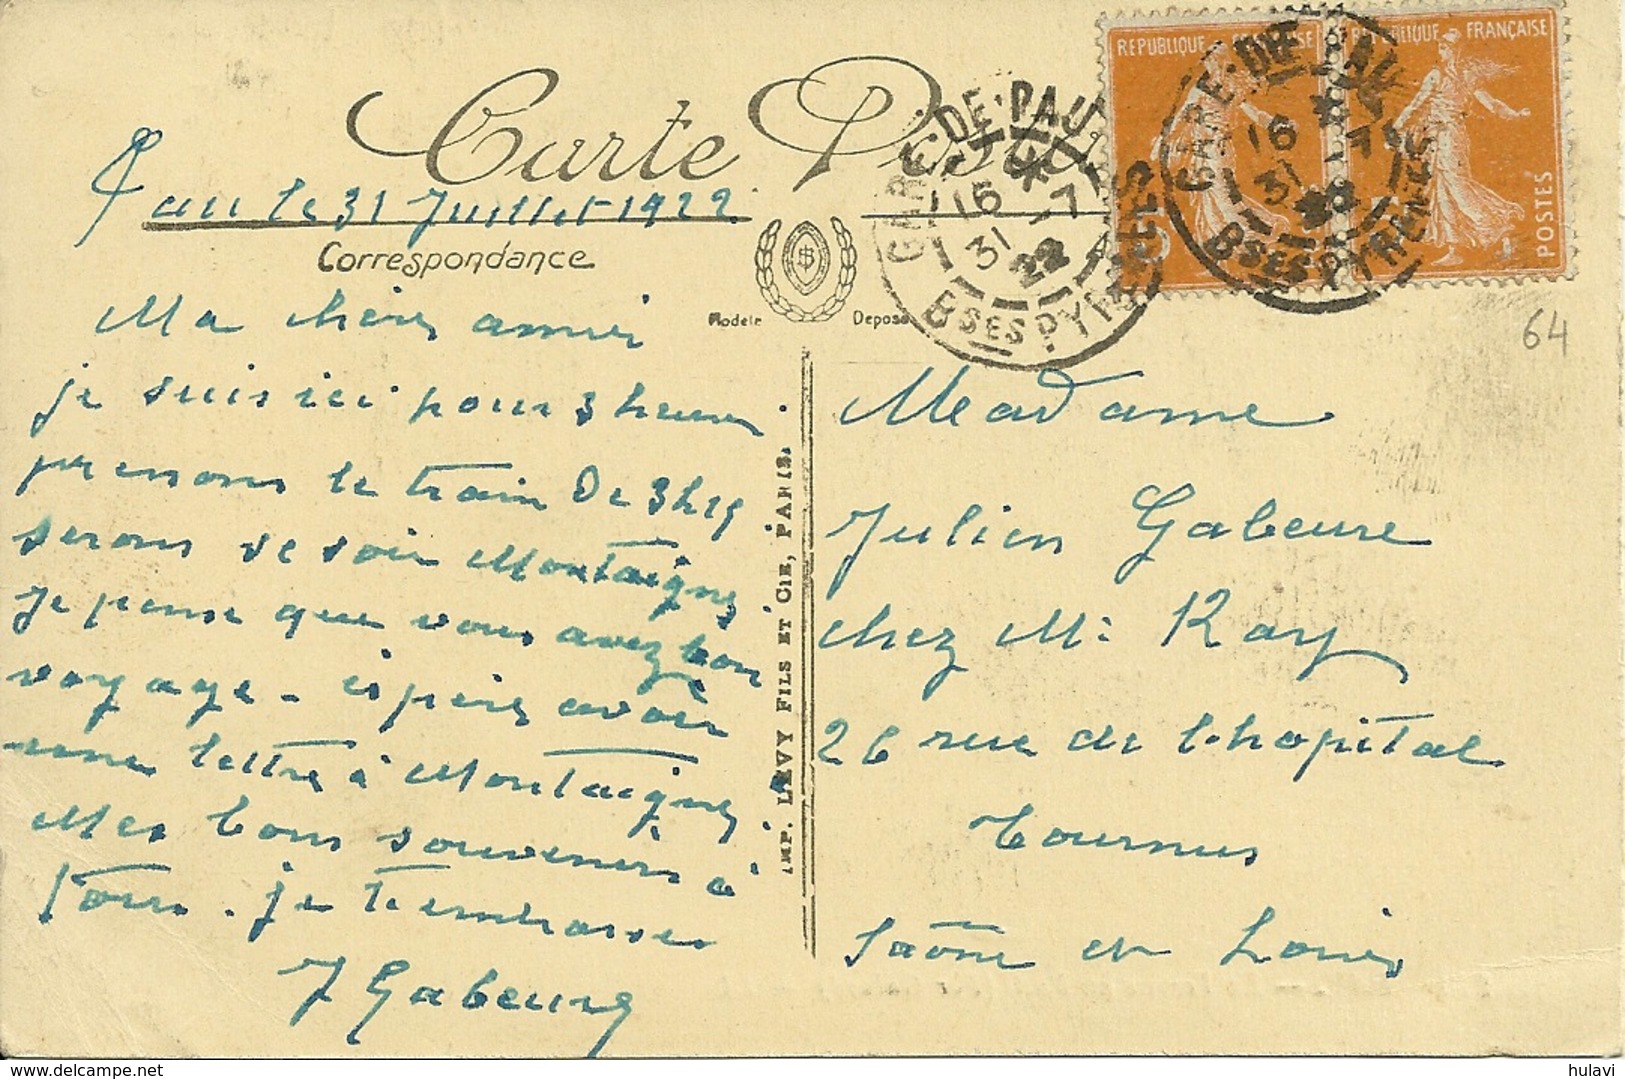 Carte Postale
Pau le 31 Juillet 1922
Correspondance
Modèle Déposé
Ma chère amie
je suis ici pour 3 heures
prenons le train de 3h15
serons ce soir Montaigne
Je pense que vous avez bon
voyage - espère avoir
une lettre à Montaigne
Mes bons souvenirs à
tous. je t'embrasse
J Gabeure
IMP. LÉVY FILS ET CIE, PARIS.
GARE·DE·PAU
16 *
31 -7
22
BSES PYRÉNÉES
GARE·DE·PAU
16 *
31 -7
22
BSES PYRÉNÉES
REPUBLIQUE FRANÇAISE
5
REPUBLIQUE FRANÇAISE
POSTES
64
Madame
Julien Gabeure
chez Mr Ray
26 rue de l'hopital
Tournus
Saône et Loire
hulavi